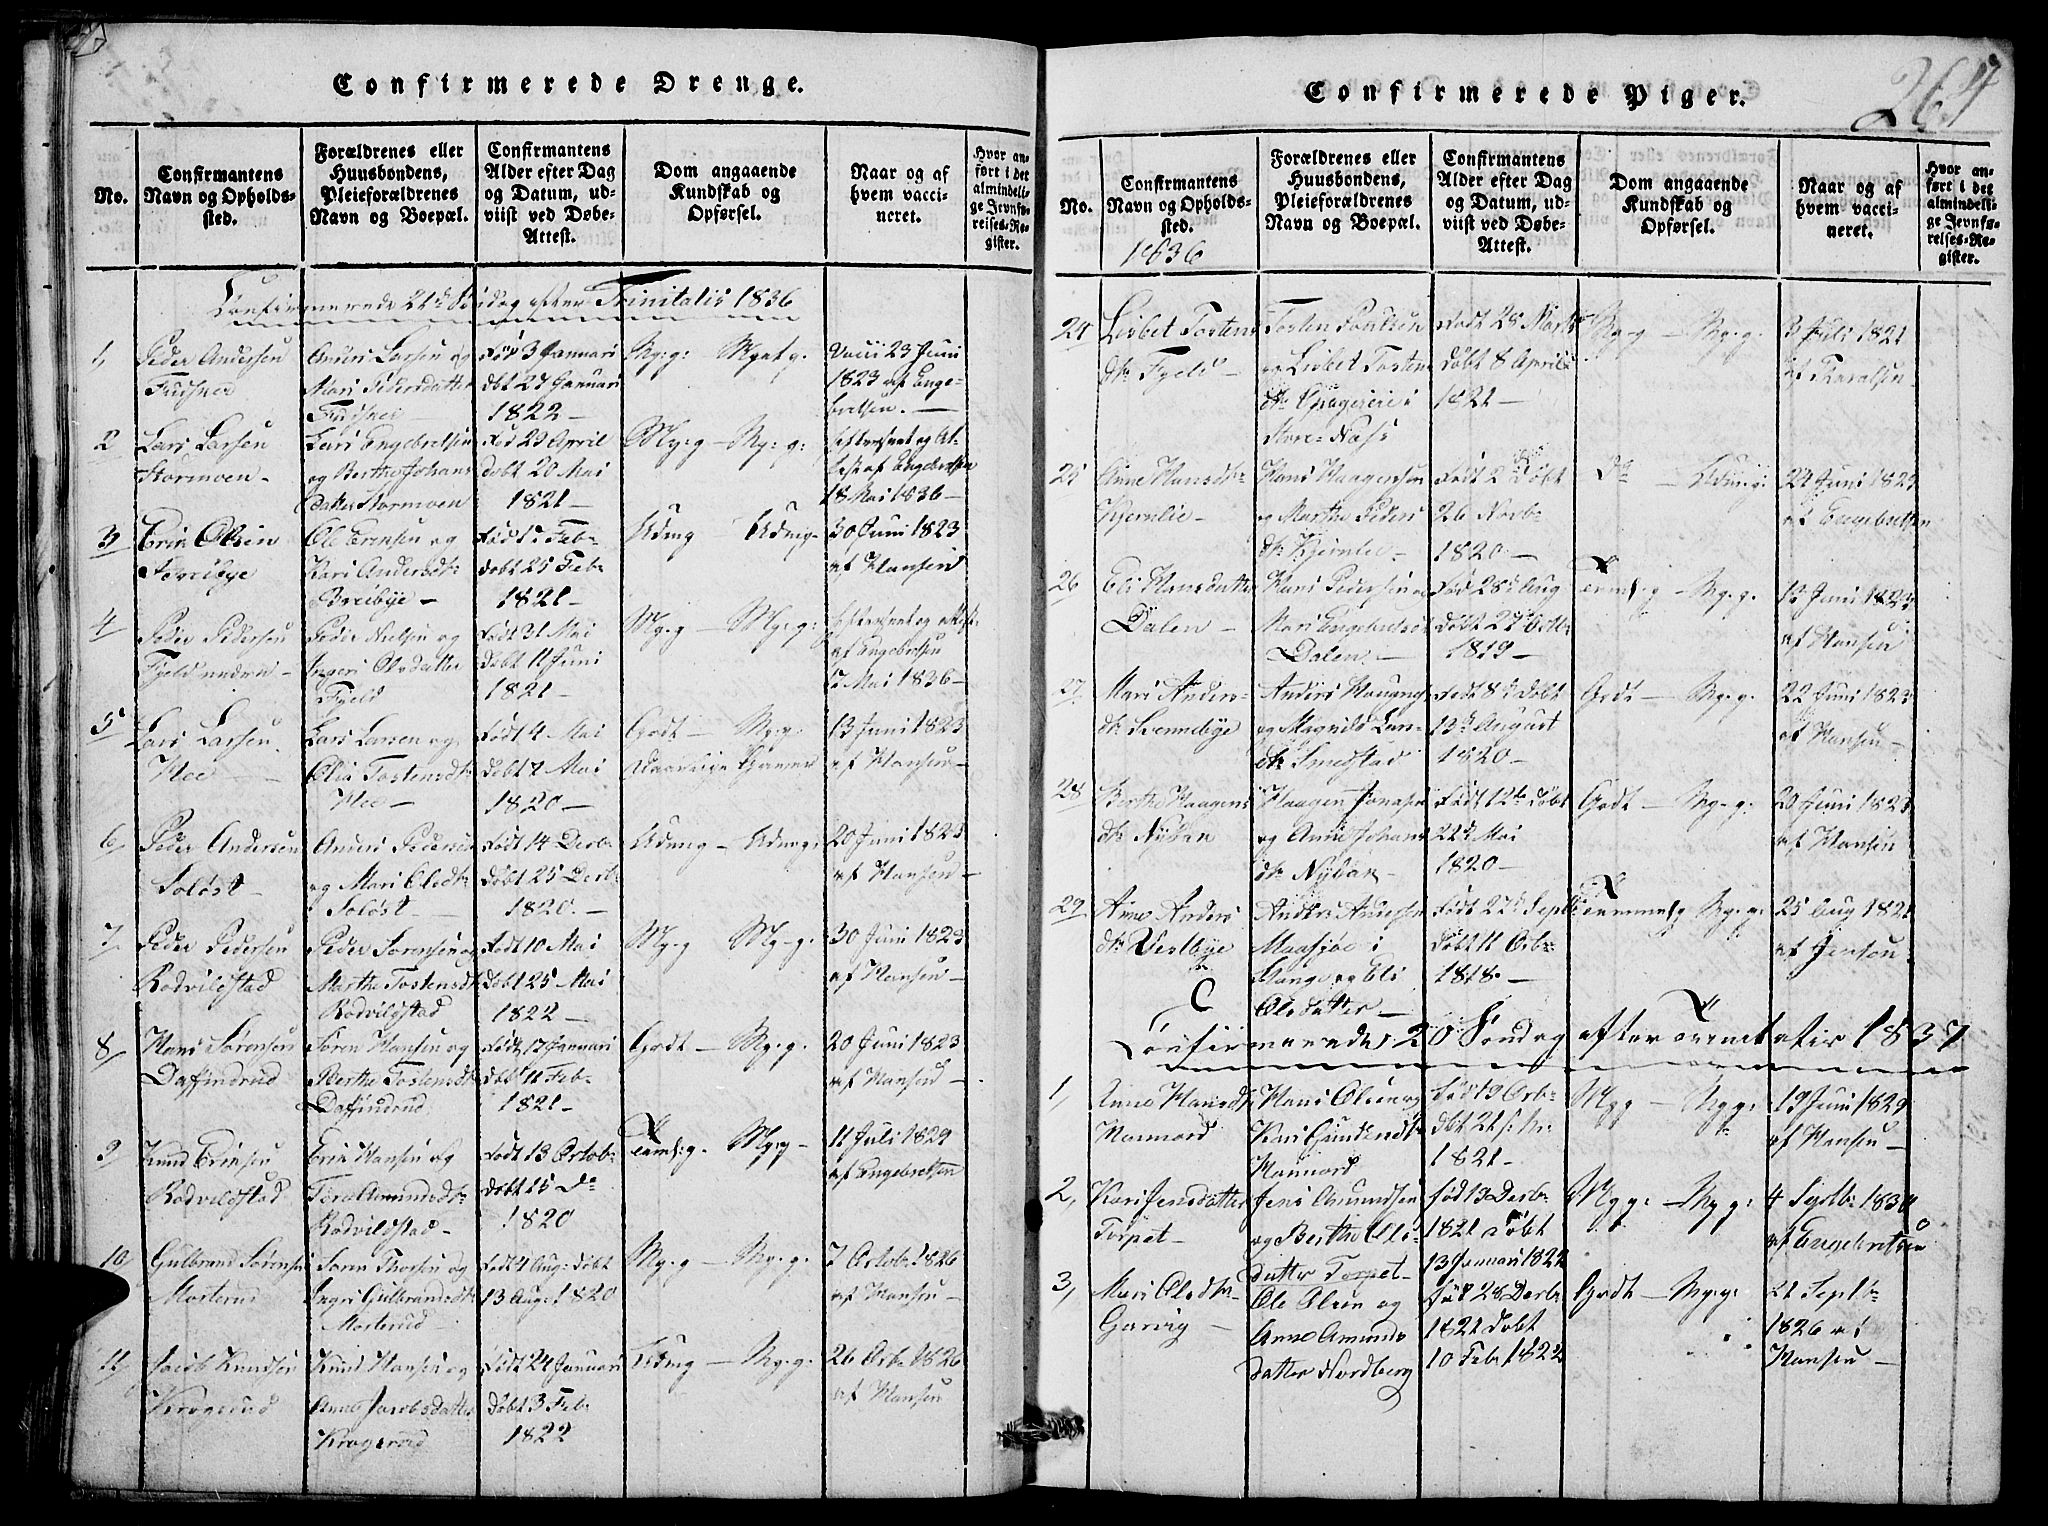 Confirmerede Drenge.
No.
Confirmantens
Navn og Opholds-
sted.
Forældrenes eller
Huusbondens,
Pleieforældrenes
Navn og Boepæl.
Confirmantens
Alder efter Dag
og Datum, ud-
viist ved Døbe-
Attest.
Dom angaaende
Kundskab og
Opførsel.
Naar og af
hvem vacci-
neret.
Hvor an-
ført i det
almindeli-
ge Jevnfø-
relses-Re-
gister.
Confirmerede 21de Søndag efter Trinitatis 1836
1,
Peder Andersen
Larsen og
Mari Pedersdatter
Fød 3 Januari
døbt 27 Januari
1822 –
Mg: g: –
23 Juni
1823 af Enge-
bretsen. –
2
Lars Larsen
Stormoen –
Lars Engebretsen
og Berthe Johans
datter Stormoen
Fød 23 April
døbt 20 Mai
1821 –
Mg: g – Mg: g:
af Engebretsen
18 Mai 1836 –
3
Erik Olsen
Ole Eriksen og
Kari Andersdtr
Breibye –
Feb
døbt 25 Feb
1821 –
Udmg – Udmg –
30 Juni 1823
af Hansen
4
Peder Pedersen
Fjeld nedre –
Peder Nielsen og
Ingeri Olsdatter
Fjeld
Født 31 Mai
døbt 11 Juni
1821 –
Mg: g – Mg: g:
af Engebretsen
17 Mai 1836 –
5
Lars Larsen
Moe –
Lars Larsen og
Olia Tostensdtr
Moe –
Født 4 Mai
døbt 7 Mai
1820 –
Godt – Mg: g
13 Juni 1823
af Hansen –
6
Peder Andersen
Soløst –
Anders Pedersen
og Mari Olsdtr
Soløst –
Født 14 Decb
døbt 25 Decb
1820. –
Udmg – Udmg:
20 Juni 1823
af Hansen –
7
Peder Pedersen
Rodvildstad
Peder Sørensen og
Marthe Tostensdtr
Rodvildstad
Født 10 Mai
døbt 25 Mai
1822 –
Mg: g Mg: g:
30 Juni 1823
af Hansen –
8
Hans Sørensen
Daffindrud
Søren Hansen og
Berthe Tostensdtr
Daffindrud
Født 17 Januari
døbt 11 Feb
1821 –
Godt – Mg: g:
20 Juni 1823
af Hansen –
9
Knud Eriksen
Rodvildstad
Erik Hansen og
Amundsdtr
Rodvildstad –
Født 13 Octob
døbt 15 Do
1820
Teml: g. Mg: g –
11 Juli 1829
af Engebretsen
10
Gulbrand Sørensen
Morterud
Søren Thorsen og
Ingri Gulbrandsdtr
Morterud –
Født 4 Aug: døbt
13 Aug: 1820
Mg: g – Mg: g:
7 Octob: 1826
af Hansen –
11
Jacob Knudsen
Krogerud
Knud Hansen og
Anne Jacobsdatter
Krogerud
Født 24 Januari
døbt 3 Feb
1822
Udmg – Mg: g:
26 Octb 1826
af Hansen
Confirmerede Piger.
264
No.
Confirmantens
Navn og Opholds-
sted.
1836
Forældrenes eller
Huusbondens,
Pleieforældrenes
Navn og Boepæl.
Confirmantens
Alder efter Dag
og Datum, ud-
viist ved Døbe-
Attest.
Dom angaaende
Kundskab og
Opførsel.
Naar og af
hvem vacci-
neret.
Hvor an-
ført i det
almindeli-
ge Jevnfø-
relses-Re-
gister.
24
Lisbet Tostens
dtr Fjeld –
Tosten Knudsen
og Lisbet Tostens
dtr i
Store-Næss
Født 28 Marts
døbt 8 April
1821 –
Mg: g – Mg: g:
3 Juli 1821
25
Anne Hansdtr
Kjernlie –
Hans Haagensen
og Marthe Peders
dtr Kjernlie –
Født 2 døbt
26 Novb
1820 –
Do –
24 Juni 1823
af Engebretsen
26
Eli Hansdatter
Dalen –
Hans Pedersen og
Mari Engebretsdtr
Dalen –
Fød 28de Aug
døbt 27 Octb
1819 –
Mg: g.
13 Juni 1823
af Hansen
27
Mari Anders-
dtr Svennebye
Anders
og Magnild Lars-
dtr Smedstad
Født 8de døbt
13de August
1820 –
Godt – Mg: g.
22 Juni 1823
af Hansen –
28
Berthe Haagens
dtr Nybak
Haagen Jonasen
og Anne Johans
dtr Nybak –
Født 12te døbt
22de Mai
1820 –
Godt – Mg: g:
20 Juni 1823
af Hansen
29
Ane Anders
dtr Vestbye
Anders Andersen
Maasjøe i
Stange og Eli
Olsdatter –
Født 27de Septb
døbt 11 Octb
1818 –
Temmelig Mg: g:
25 Aug 1821
af Jenson
Confirmerede 20 Søndag efter Trinitatis 1837
1,
Anne Hansdtr
Hans Olsen og
Kari Gundersdtr
Fød 19 Octb
døbt 21
1821 –
Mg g – Mg g:
19 Juni 1829
af Hansen –
2,
Kari Jensdatter
Torpet –
Jens Amundsen
og Berthe Ols-
datter Torpet –
Fød 13 Decb
1821 døbt
13 Januari 1822
Mg g: – Mg g:
4 Septb: 183
af Engebretsen
3,
Mari Olsdtr
Garvig –
Ole Olsen og
Anne Amunds
datter Nordberg
Fød 28 Decb
1821 døbt
10 Feb: 1822
Godt – Mg: g:
21 Septb
1826 af
Hansen –